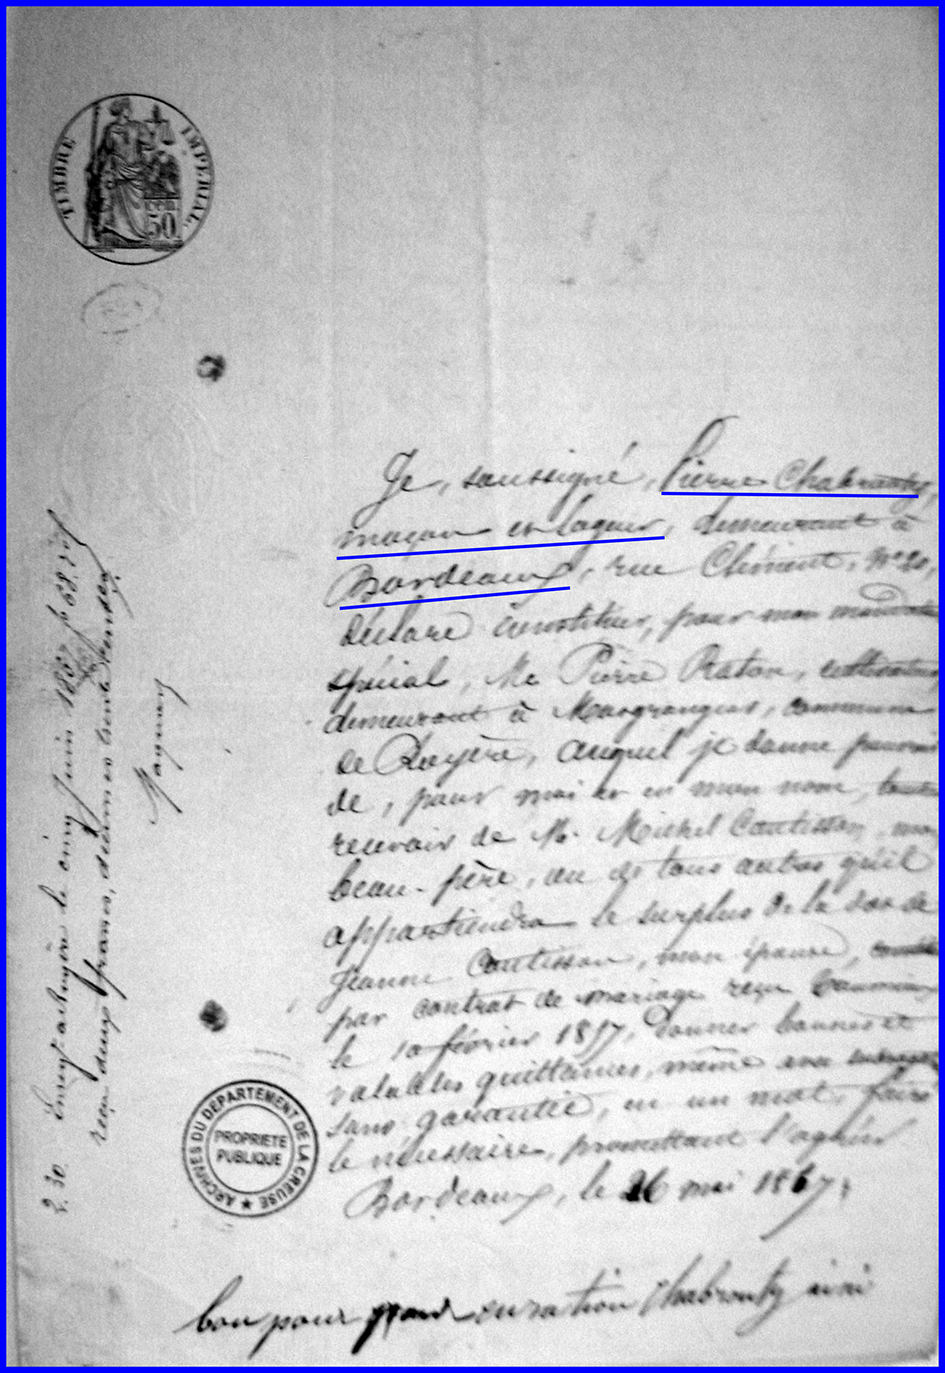 TIMBRE IMPERIAL
cen.
50.
Je, soussigné, Pierre Chabrouty,
maçon et logeur, demeurant à
Bordeaux, rue Clément, N° 20,
déclare constituer, pour mon
spécial, Me Pierre Raton, cultivateur
demeurant à Masgrangeas, commune
de Royère, auquel je donne pouvoir
de, pour moi et en mon nom,
recevoir de M. Michel Coutisson, mon
beau-père, ou de tous autres qu'il
appartiendra le surplus de la dot de
Jeanne Coutisson, mon épouse,
par contrat de mariage reçu
le 10 février 1857, donner bonnes et
valables quittances, même avec
sans garantie, en un mot, faire
le nécessaire, promettant l'agréer
Bordeaux, le 26 mai 1867.
bon pour Chabrouty
Enregé à Royère le cinq juin 1867
reçu deux francs, décimes trente
2.30
ARCHIVES DU DEPARTEMENT DE LA CREUSE ★
PROPRIETE
PUBLIQUE